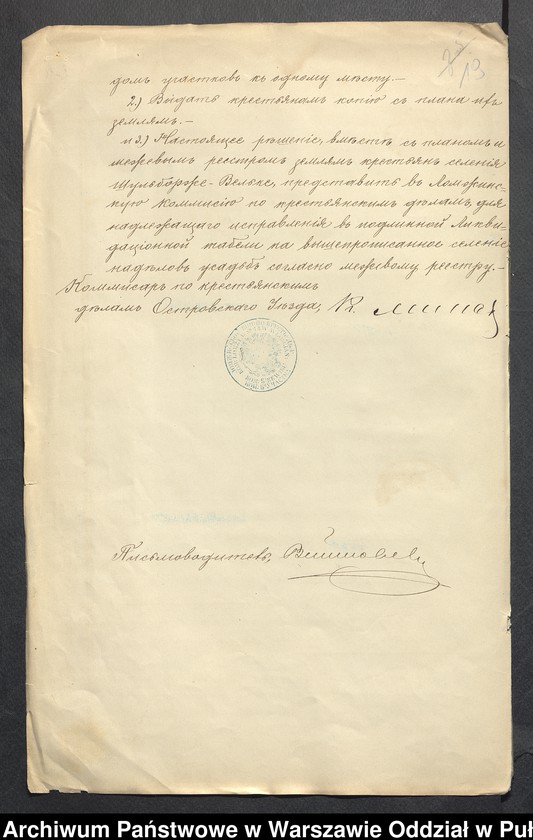 13
домъ участковъ къ одному мѣсту.—
2.) Выдать крестьянамъ копію съ плана ихъ
землямъ.—
и 3.) Настоящее рѣшеніе, вмѣстѣ съ планомъ и
межевымъ реэстромъ землямъ крестьянъ селенія
Шульборже-Вельке, представить въ Ломжин-
скую коммисію по крестьянскимъ дѣламъ, для
надлежащаго исправленія въ подлинной Ликви-
даціонной табели на вышепрописанное селеніе
надѣловъ усадьбъ согласно межевому реестру.—
Коммисаръ по крестьянскимъ
дѣламъ Островскаго Уѣзда,
Письмоводитель,
Archiwum Państwowe w Warszawie Oddział w Puł